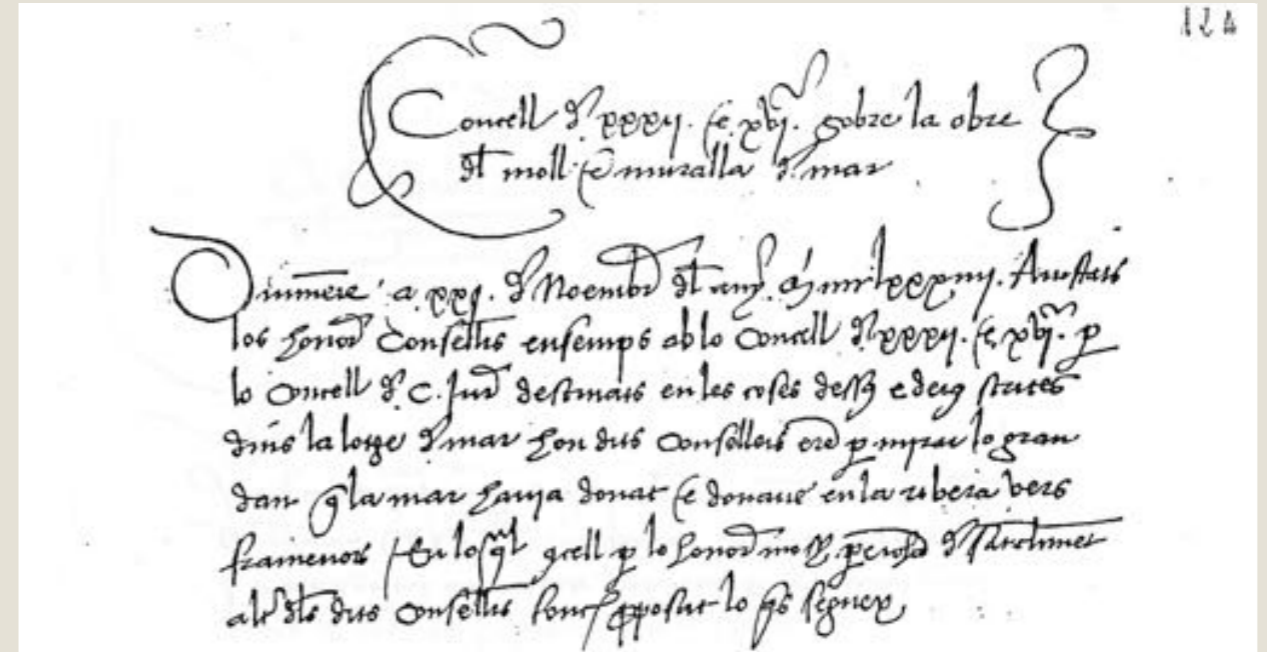 124
Concell d. xxxij. e xvj. sobre la obre
dl moll e muralla d. mar
Diumere a xxj. d Noembr dl any M iiij lxxxiiij. Aiustats
los honor Consellers ensemps ab lo Concell d. xxxij. e xvj. p
lo Concell d. C. Jur destinats en les coses dess e deius scrites
dins la lotge d mar hon dits Consellers ere p mirar lo gran
dan q la mar havia donat e donave en la ribera vers
framenors En lo ql cell p lo honor moss d
alt dls dits Consellers fonc pposat lo qs segueix